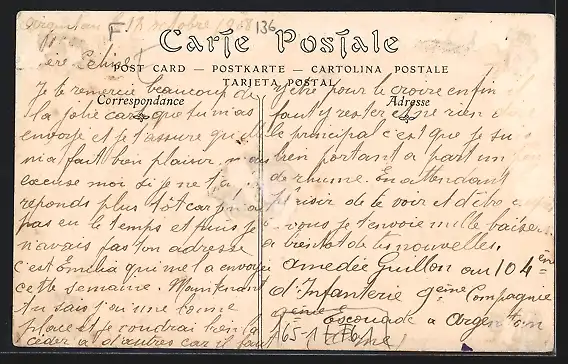 Argentan le 13 octobre 1908
F
136
Carte Postale
POST CARD — POSTKARTE — CARTOLINA POSTALE
TARJETA POSTAL
Correspondance
Adresse
Je te remercie beaucoup de
la jolie carte que tu m'as
envoyé et je t'assure qu'elle
m'a fait bien plaisir. mais
excuse moi si je ne t'ai
reponds plus tôt car je n'ai
pas eu le temps et puis je
n'avais pas ton adresse
c'est Emilia qui me l'a envoyée
cette semaine. Maintenant
tu sais j'ai une bonne
place et je voudrai bien la
céder à d'autres car il faut
y être pour le croire enfin
faut y rester et ne rien dire
le principal c'est que je suis
bien portant a part un peu
de rhume. En attendant
plaisir de te voir et d'être
vous je t'envoie mille baisers
a bientot de tes nouvelles
Amedée Guillon au 104ème
d'Infanterie 9ème Compagnie
Escouade a Argentan
Orne
165-1